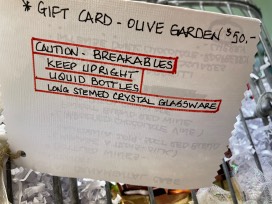 * GIFT CARD - OLIVE GARDEN $50.-
CAUTION - BREAKABLES
KEEP UPRIGHT
LIQUID BOTTLES
LONG STEMED CRYSTAL GLASSWARE